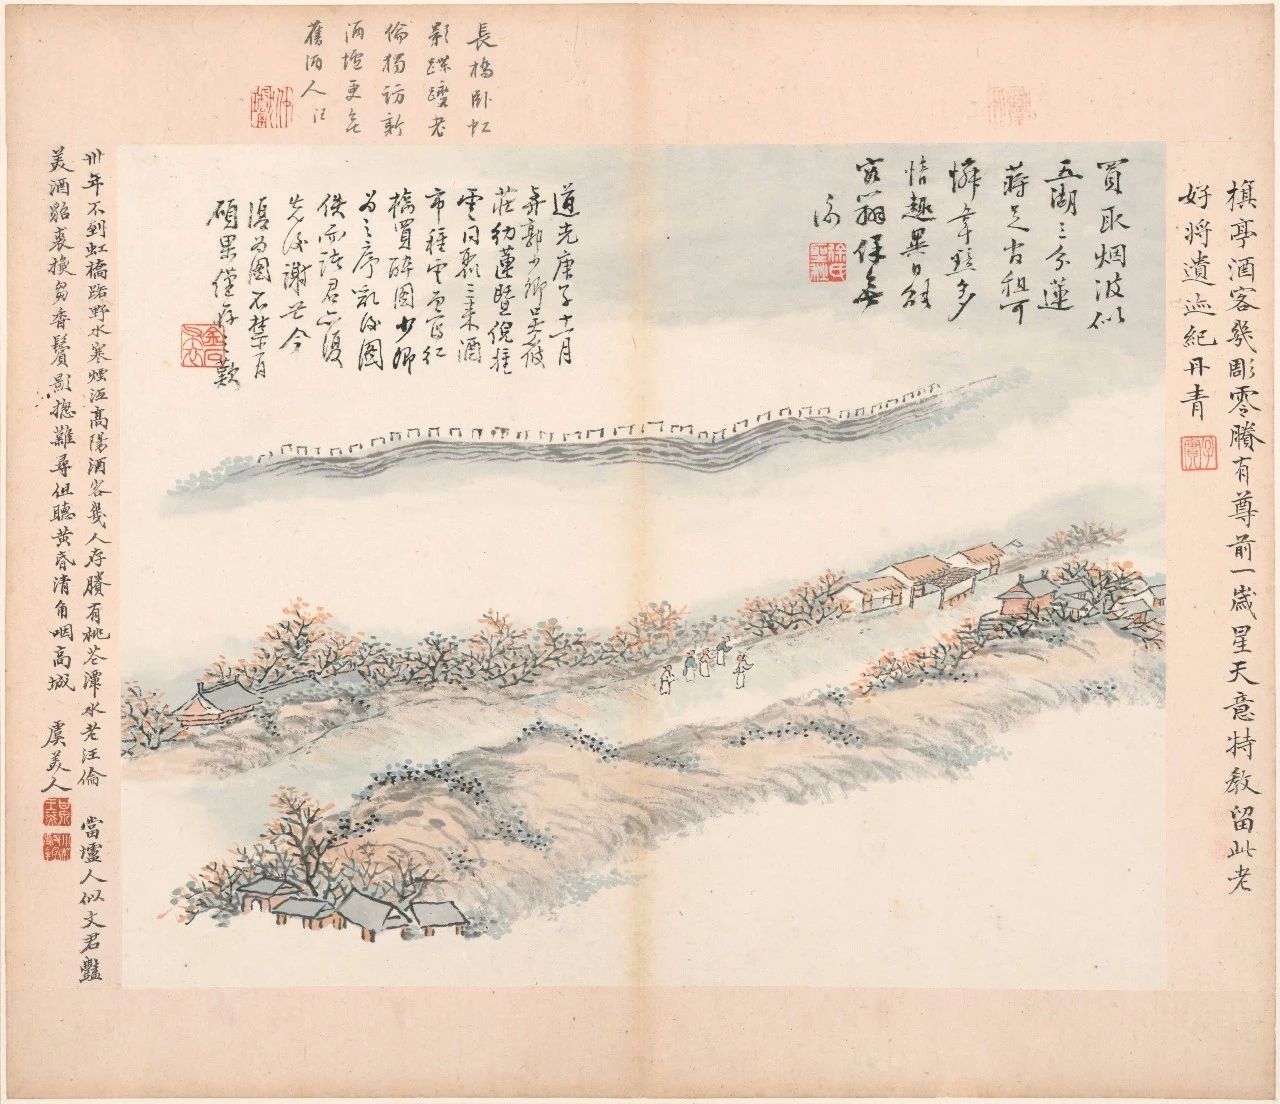 旗亭酒客幾彫零賸有尊前一歲星天意特教留此老
好將遺迹紀丹青
買取烟波似
五湖三分蓮
蔣足官租可
憐
多
情趣異日能
容
無
道光庚子十一月
郭少卿吳筱
莊幼蓮暨倪稚
雲同
三
酒
市稚雲為寫紅
橋買醉圖少卿
為之序
後圖
佚而諸君亦復
先後謝世今
復為圖不禁有
碩果僅存之歎
長橋卧虹
影蹀躞老
倫獨訪新
酒壚更無
舊酒人
卅年不到虹橋路野水寒煙沍高陽酒客幾人存賸有桃花潭水老汪倫 當壚人似文君豔
美酒貂裘換芻香鬢影摠難尋但聽黄昏清角咽高城 虞美人